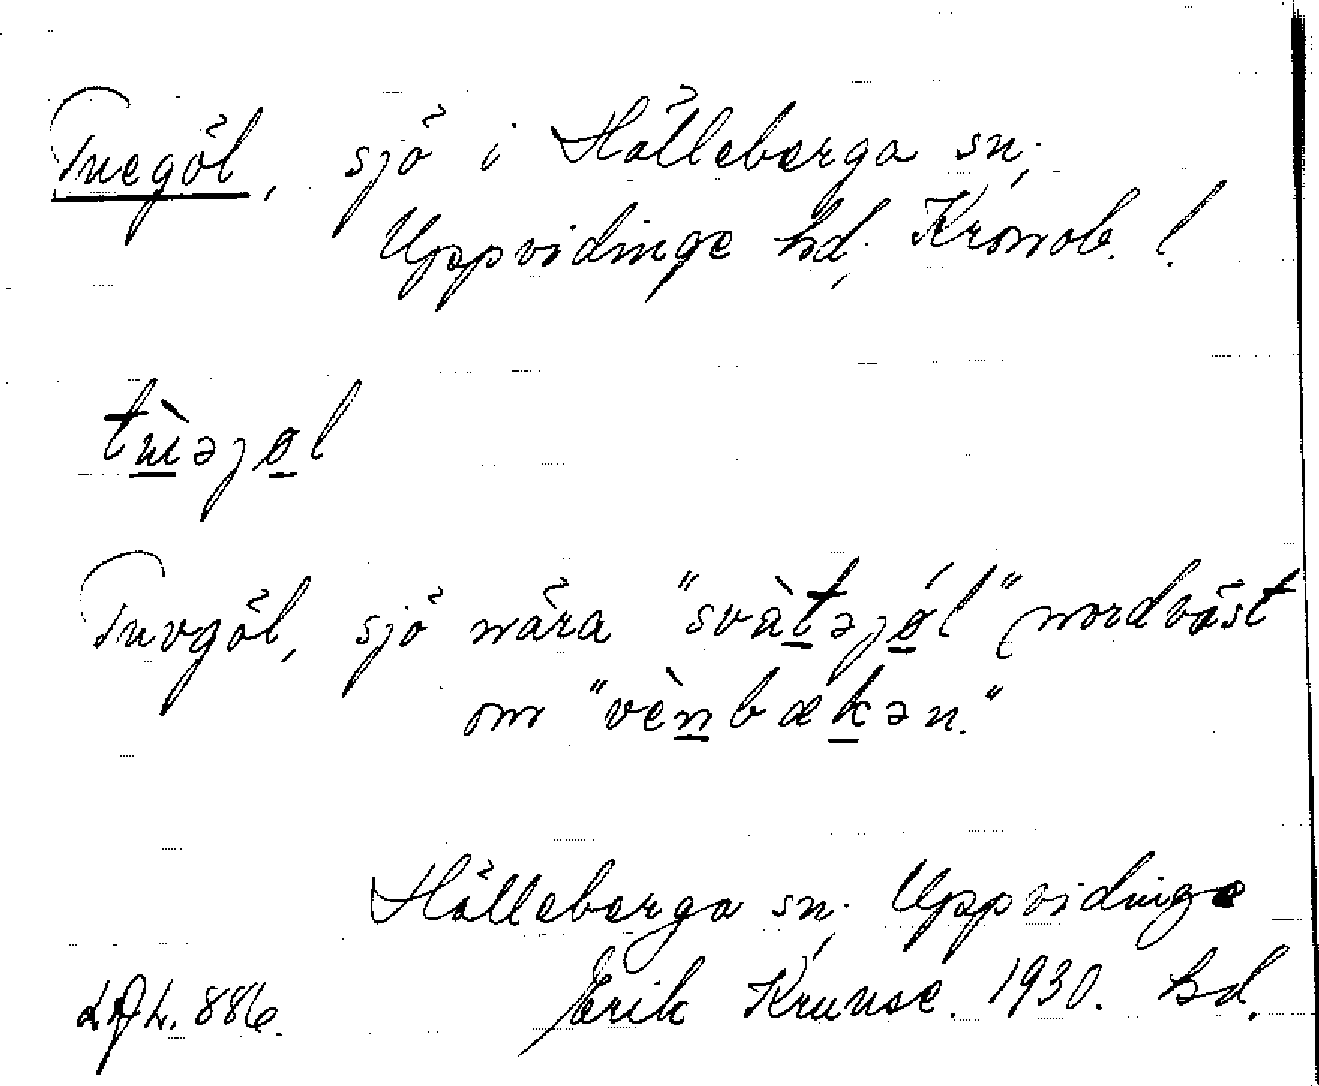 Tuegöl, sjö i Hälleberga sn,
Uppvidinge hd, Kronob. l.
tù̲əjo̲l
Tuvgöl, sjö nära "svàt̲əjǿ̲l" nordväst
om "vèn̲bæk̲ən."
Hälleberga sn, Uppvidinge
Erik Kruuse. 1930. hd.
886.